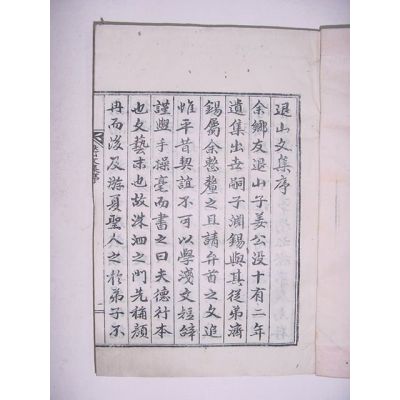 退山文集序
余鄉友退山子姜公没十有二年
遺集出世嗣子淵錫與其從弟濟
錫屬余整釐之且請弁首之文追
惟平昔契誼不可以學淺文短辭
謹與手操毫而書之曰夫德行本
也文藝末也故洙泗之門先稱顔
冉而後及游夏聖人之於弟子不